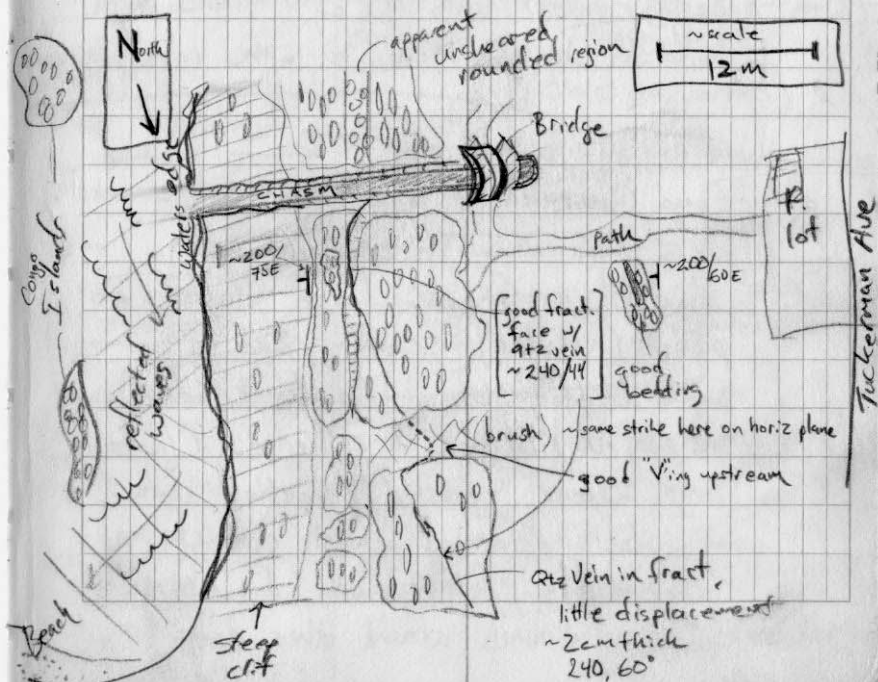 North
apparent
unsheared,
rounded region
~scale
12m
Bridge
Waters edge
CHASM
P.
lot
Tuckerman Ave
path
Congo
Islands
reflected
waves
~200/
75E
~200/60E
good fract.
face w/
qtz vein
~240/44
good
bedding
(brush)
~same strike here on horiz plane
good "V"ing upstream
Qtz Vein in fract,
little displacement
~2cm thick
240, 60°
Beach
Steep
clif